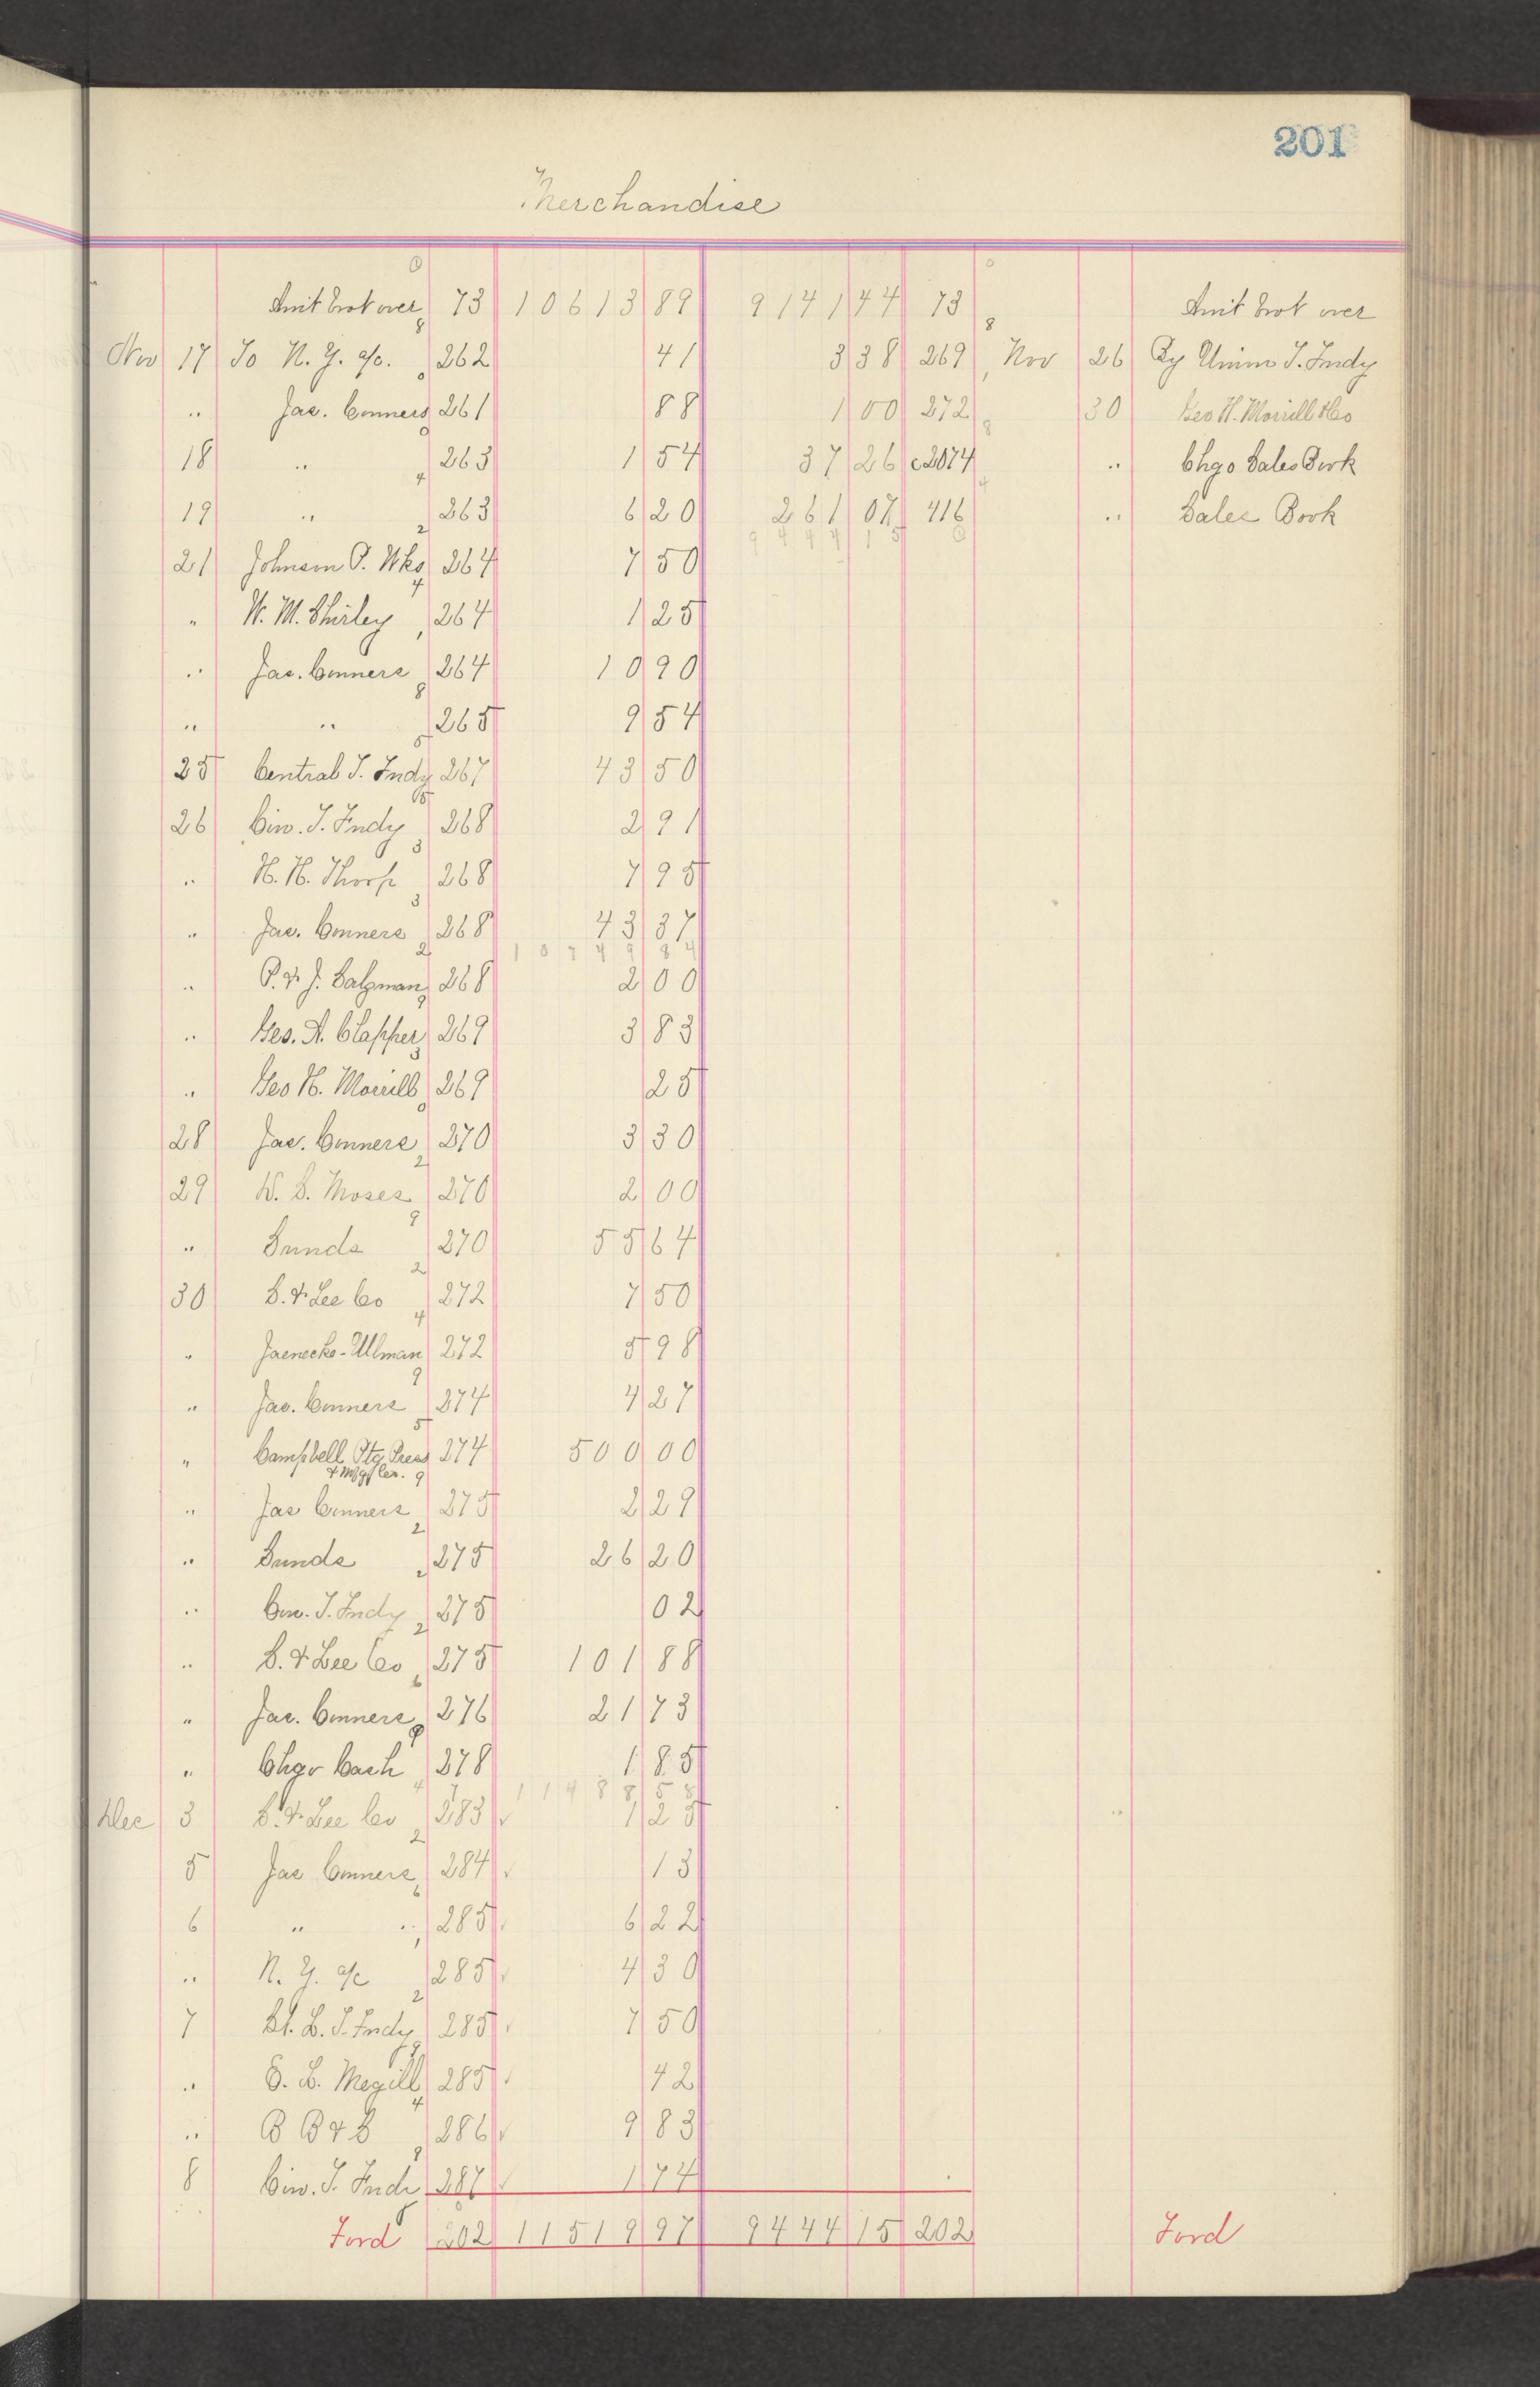 201
Merchandise
Amt brot over 73 10613 89 9141 44 73 Amt brot over
Nov 17 To N. Y. a/c. 262 41 3 38 269 Nov 26 By Union T. Fndy
" Jas. Conners 261 88 1 00 272 30 Geo H. Morrill & Co
18 " 263 1 54 37 26 c2074 " Chgo Sales Book
19 " 263 6 20 261 07 416 " Sales Book
9444 15
21 Johnson P. Wks 264 7 50
" W. M. Shirley 264 1 25
" Jas. Conners 264 10 90
" " 265 9 54
25 Central T. Fndy 267 43 50
26 Cin. T. Fndy 268 2 91
" H. H. Thorp 268 7 95
" Jas. Conners 268 43 37
10749 84
" P. & J. Salzman 268 2 00
" Geo. A. Clapper 269 3 83
" Geo H. Morrill 269 25
28 Jas. Conners 270 3 30
29 W. S. Moses 270 2 00
" Sunds 270 55 64
30 S. & Lee Co 272 7 50
" Jaenecke-Ullman 272 5 98
" Jas. Conners 274 4 27
" Campbell Ptg Press 274 500 00
& Mfg Co.
" Jas Conners 275 2 29
" Sunds 275 26 20
" Cin. T. Fndy 275 02
" S. & Lee Co 275 101 88
" Jas. Conners 276 21 73
" Chgo Cash 278 1 85
11488 58
Dec 3 S. & Lee Co 283 1 25
5 Jas Conners 284 13
6 " " 285 6 22
" N. Y. a/c 285 4 30
7 St. L. T. Fndy 285 7 50
" E. L. Megill 285 42
" B B & S 286 9 83
8 Cin. T. Fndr 287 1 74
Ford 202 11519 97 9444 15 202 Ford